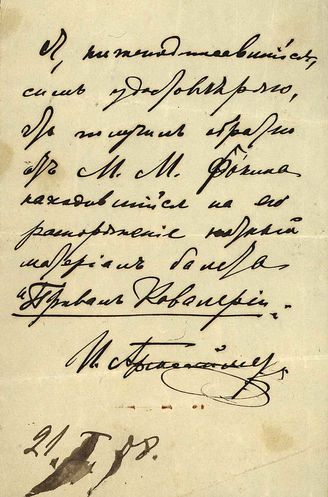 Я, нижеподписавшийся,
симъ удостовѣряю,
что получилъ обратно
отъ М. М. Фокина
находившійся въ его
распоряженіе нотный
матеріалъ балета
"Привалъ Кавалеріи".
21. I 08.